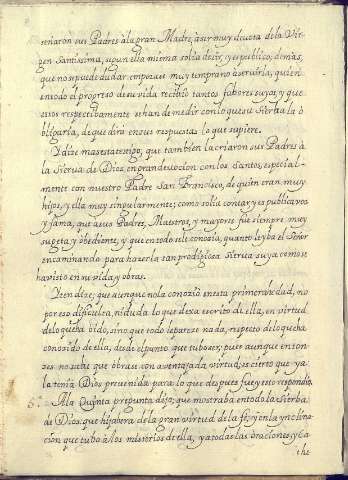 señaron sus Padres à la gran Madre, a ser muy devota de la Vir-
gen Santissima, segun ella misma solia deçir, y es publico; demàs,
que no se puede dudar empezase muy temprano a servirla, quien
en todo el progreso de su vida recibiò tantos fabores suyos, y que
estos respectibamente se han de medir con lo que su Sierba la o
bligaria, de que dirà en sus respuestas lo que supiere.
Y dice mas esta testigo, que tambien la criaron sus Padres à
la Sierva de Dios, en gran devocion con los Santos, especial-
mente con nuestro Padre San Francisco, de quien eran muy
hijos, y ella muy singularmente; como solia contar, y es publica voz
y fama, que a sus Padres, Maestros, y mayores fue siempre muy
sugeta y obediente, y que en todo se le conozia, quanto la yba el Señor
encaminando para hazerla tan prodigiosa Sierva suya como se
ha visto en su vida y obras.
Yten dize; que aunque no la conoziò en esta primera hedad, no
por eso dificulta, ni duda lo que dexa escrito de ella, en virtud
de lo que ha oydo, sino que todo le pareze nada, respeto de lo que ha
conozido de ella, desde el punto que tubo ser, pues aunque enton-
zes no sea las que obrase con aventajada virtud; es cierto que ya
la tenia Dios prevenida para lo que despues fue, y esto respondio.
A la Quinta pregunta dijo; que mostraba en todo la Sierba
de Dios que hablera de la gran virtud de la fe, y en la yncli na
cion que tuba a los misterios de ella, y a todas las oraciones, y ca
the